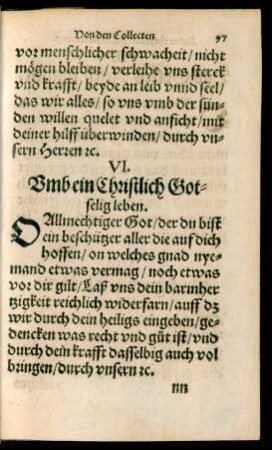 Von den Collecten 97
vor menschlicher schwacheit/nicht
mögen bleiben/verleihe vns sterck
vnd krafft/beyde an leib vnnd seel/
das wir alles/so vns vmb der sün-
den willen quelet vnd anficht/mit
deiner hilff überwinden/durch vn-
sern Herren ꝛc.
VI.
Vmb ein Christlich Got-
selig leben.
O Allmechtiger Got/der du bist
ein beschützer aller die auf dich
hoffen/on welches gnad nye-
mand etwas vermag/noch etwas
vor dir gilt/Laß vns dein barmher
tzigkeit reichlich widerfarn/auff dz
wir durch dein heiligs eingeben/ge-
dencken was recht vnd güt ist/vnd
durch dein krafft dasselbig auch vol
bringen/durch vnsern ꝛc.